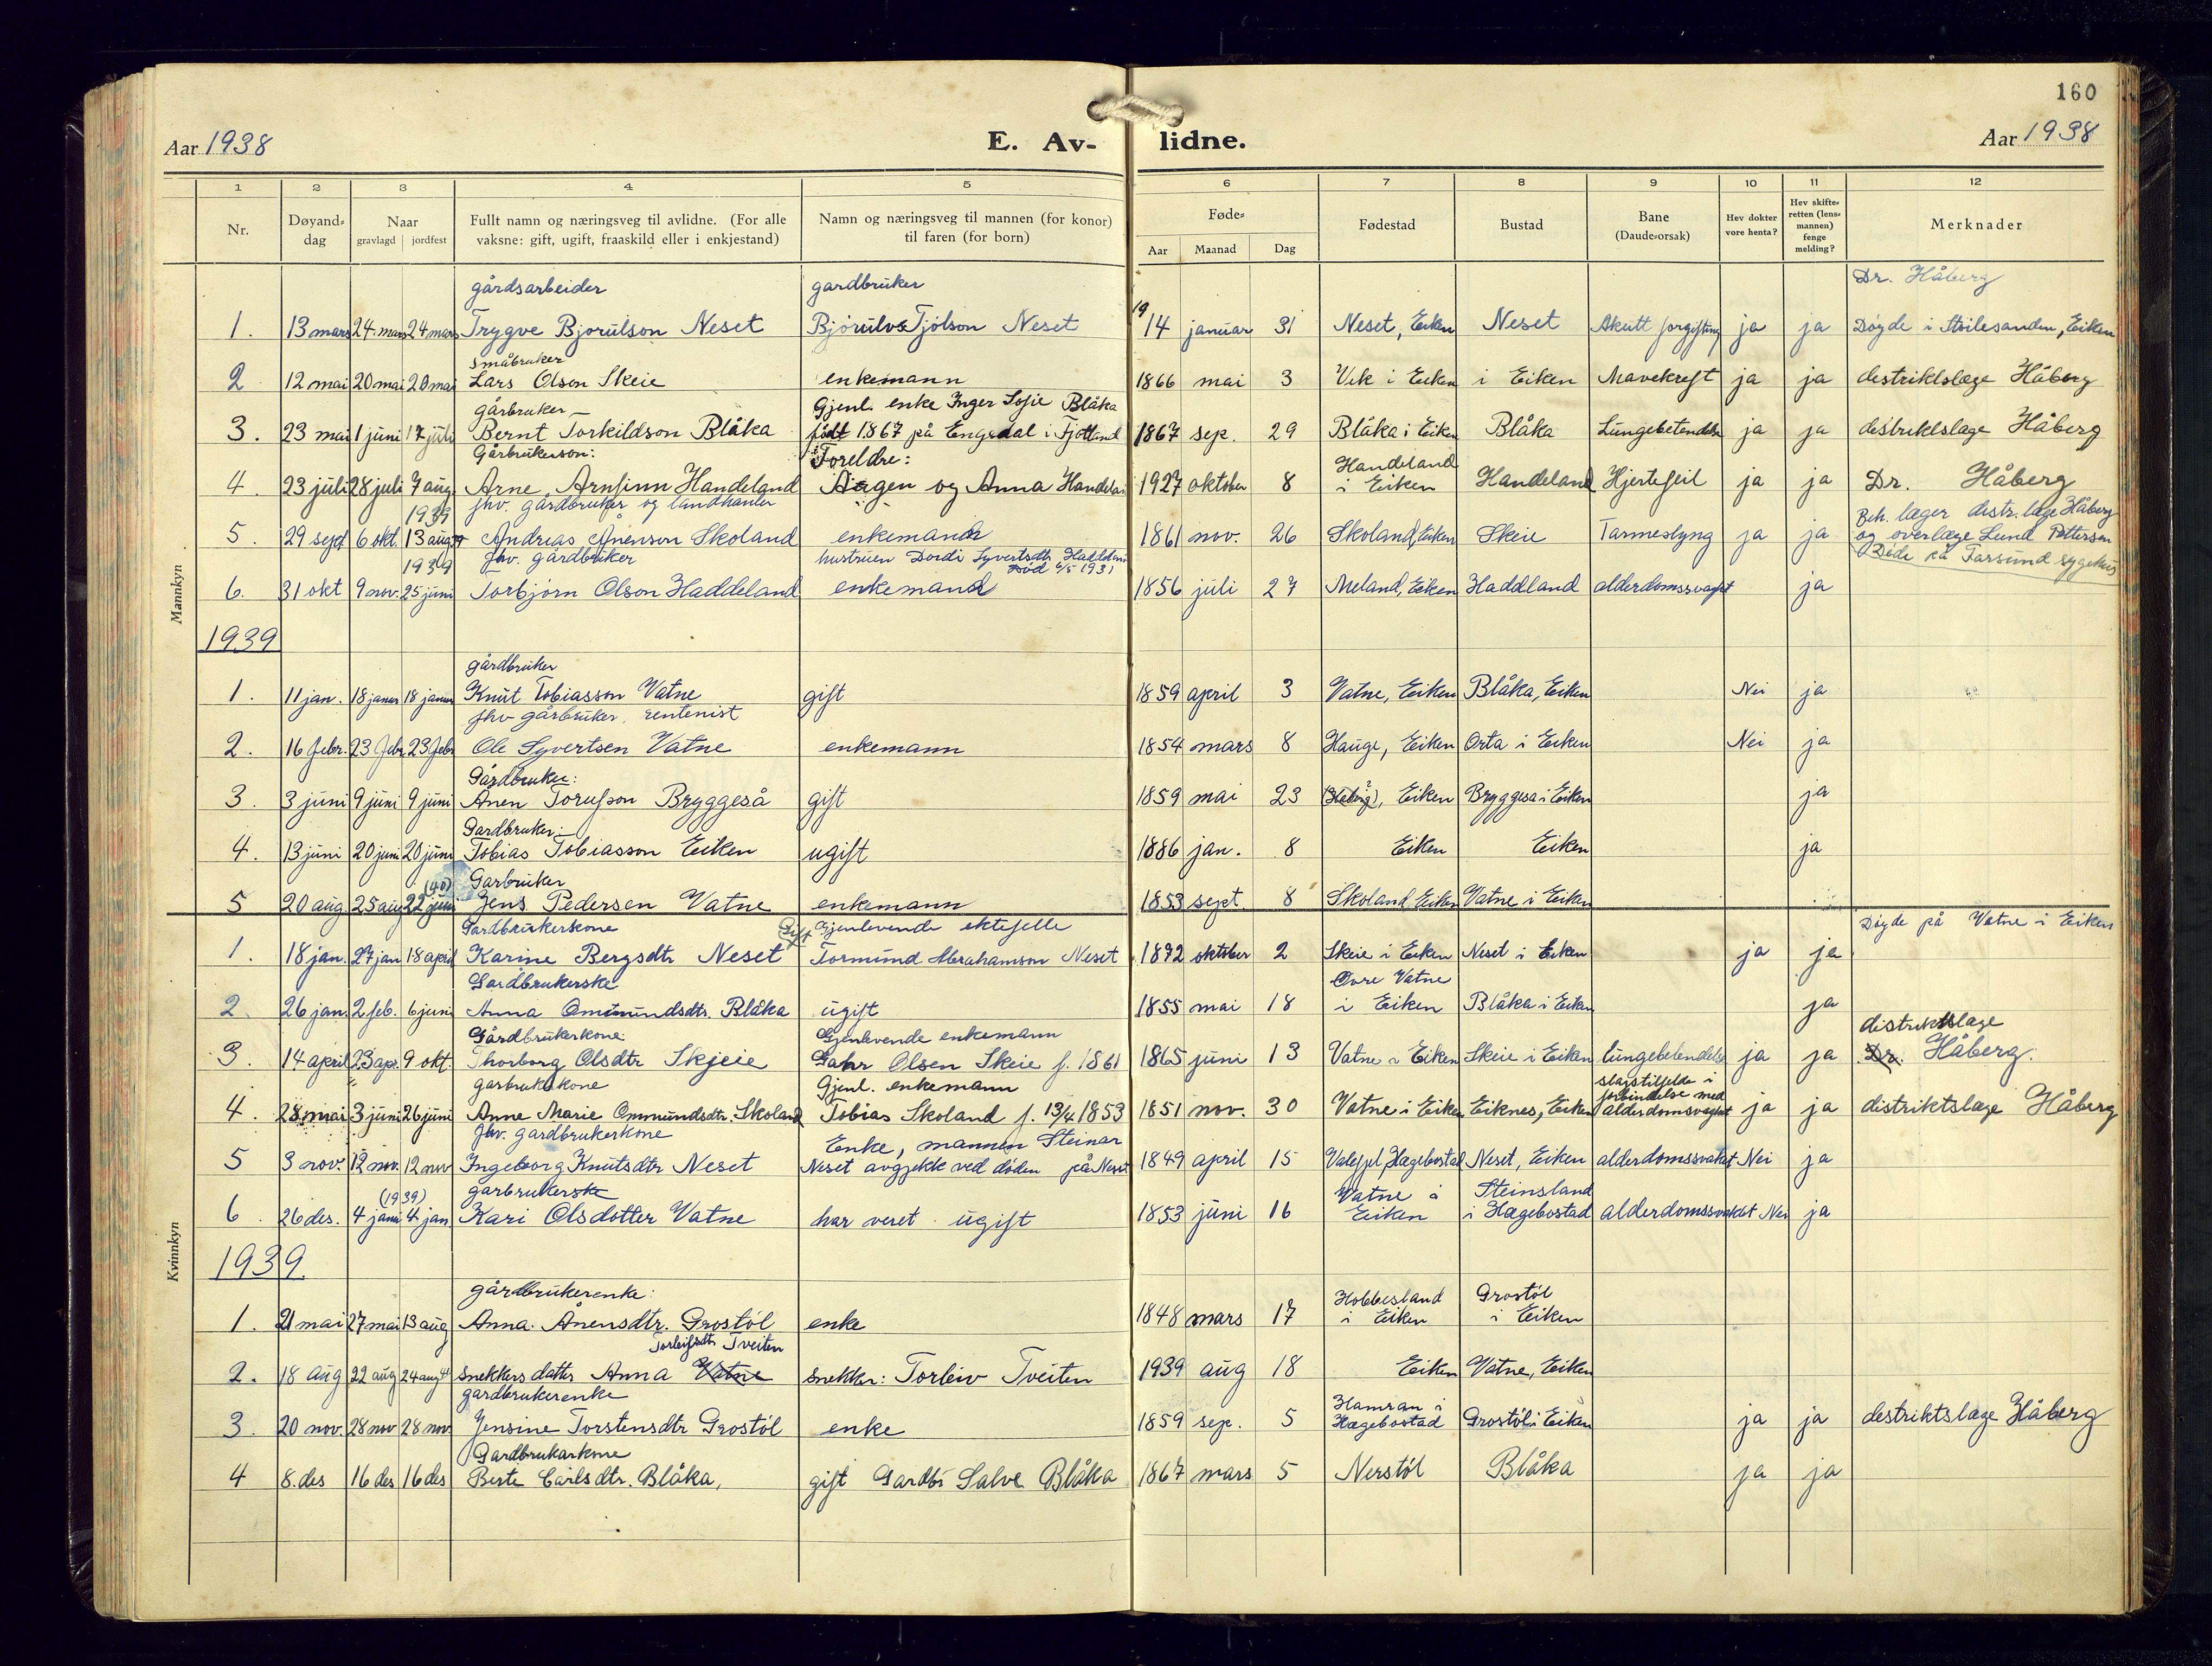 160
Aar 1938 E. Av- lidne. Aar 1938
1 2 3 4 5 6 7 8 9 10 11 12
Nr. Døyand-dag Naar gravlagd jordfest Fullt namn og næringsveg til avlidne. (For alle vaksne: gift, ugift, fraaskild eller i enkjestand) Namn og næringsveg til mannen (for konor) til faren (for born) Føde- Aar Maanad Dag Fødestad Bustad Bane (Daude-orsak) Hev dokter vore henta? Hev skifte-retten (lens-mannen) fenge melding? Merknader
Mannkyn
gårdsarbeider gardbruker Dr. Håberg
1. 13 mars 24. mars 24 mars Trygve Bjorulson Neset Bjørulv Tjølson Neset 1914 januar 31 Neset, Eiken Neset Akutt forgiftning ja ja Døyde i Eiken
småbruker
2 12 mai 20 mai 20 mai Lars Olson Skeie enkemann 1866 mai 3 Vik i Eiken i Eiken Mavekreft ja ja distriktslæge Håberg
gårbruker Gjenl. enke Inger Sofie Blåka
3. 23 mai 1 juni 17 juli Bernt Torkildson Blåka født 1867 på Engedal i Fjotland 1867 sep. 29 Blåka i Eiken Blåka Lungebetendelse ja ja distriktslage Håberg
Gårbrukerson: Foreldre: Handeland
4. 23 juli 28 juli 7 aug. Arne Arnfinn Handeland Aagen og Anna Handeland 1927 oktober 8 i Eiken Handeland Hjertefeil ja ja Dr. Håberg
1939 fhv. gårdbruker og landhandler Beh. læger distr. læge Håberg
5. 29 sept 6 okt. 13 aug Andreas Ånenson Skoland enkemann 1861 nov. 26 Skoland, Eiken Skeie Tarmeslyng ja ja og overlæge Lund Pettersen
1939 fhv. gårdbruker hustruen Dordi Syvertsdtr. Haddeland Død 6/5 1931 Døde på Farsund sygehus
6. 31 okt 9 nov. 25 juni Torbjørn Olson Haddeland enkemann 1856 juli 27 Meland, Eiken Haddland alderdomssvaghet ja
1939
gårdbruker
1. 11 jan. 18 januar 18 januar Knut Tobiasson Vatne gift 1859 april 3 Vatne, Eiken Blåka, Eiken Nei ja
fhv gårbruker, rentenist
2. 16 febr. 23 febr 23 febr Ole Syvertsen Vatne enkemann 1854 mars 8 Hauge, Eiken Orta i Eiken Nei ja
Gårdbruker:
3. 3 juni 9 juni 9 juni Ånen Torusson Bryggeså gift 1859 mai 23 Eiken Bryggesa i Eiken ja
Gardbruker:
4. 13 juni 20 juni 20 juni Tobias Tobiasson Eiken ugift 1886 jan. 8 Eiken Eiken ja
(40) Garbruker
5 20 aug 25 aug 22 juni Jens Pedersen Vatne enkemann 1853 sept. 8 Skoland Eiken Vatne i Eiken
Kvinnkyn
Gardbrukerskone Gift Gjenlevende ektefelle Døyde på Vatne i Eiken
1. 18 jan. 27 jan 18 april Karine Bergsdtr Neset Tormund Abrahamson Neset 1892 oktober 2 Skeie i Eiken Neset i Eiken ja ja
Gardbrukerske Øvre Vatne
2. 26 jan. 2 feb. 6 juni Anna Ommundsdtr. Blåka ugift 1855 mai 18 i Eiken Blåka i Eiken ja
Gårdbrukerkone: Gjenlevende enkemann distriktslage
3. 14 april 23 apr. 9 okt. Thorborg Olsdtr Skjeie Gahr Olsen Skeie f. 1861 1865 juni 13 Vatne i Eiken Skeie i Eiken lungebetendelse ja ja Dr. Håberg.
garbrukskone Gjenl. enkemann slagstilfelde i forbindelse med
4. 28 mai 3 juni 26 juni Anne Marie Ommundsdtr. Skoland Tobias Skoland f. 13/4 1853 1851 nov. 30 Vatne i Eiken Eiknes, Eiken alderdomsvaghet ja ja distriktslæge Håberg
fhv. gardbrukerkone Enke, mannen Steinar
5 3 nov. 12 nov. 12 nov Ingeborg Knutsdtr Neset Neset avgjekk ved døden på Neset 1849 april 15 Hægebostad Neset, Eiken alderdomssvakhet Nei ja
(1939) garbrukerske Vatne i Steinsland
6. 26 des. 4 janu 4 jan Kari Olsdotter Vatne har veret ugift 1853 juni 16 Eiken i Hægebostad alderdomssvakhet Nei ja
1939.
gårdbrukerenke: Hobbesland Grostøl
1. 21 mai 27 mai 13 aug Anna Ånensdtr. Grostøl enke 1848 mars 17 i Eiken i Eiken
Torleifsdtr Tveiten
2. 18 aug 22 aug 24 aug snekkers datter Anna Vatne snekker: Torleiv Tveiten 1939 aug 18 Eiken Vatne, Eiken
gardbrukerenke Hamran i
3. 20 nov. 28 nov 28 nov Jensine Torstensdtr Grostøl enke 1859 sep. 5 Hægebostad Grostøl i Eiken ja ja destriktslæge Håberg
Gardbrukarkone
4 8. des 16 des 16 des Berte Carlsdtr. Blåka, gift Gardbr Salve Blåka 1867 mars 5 Nerstøl Blåka ja ja